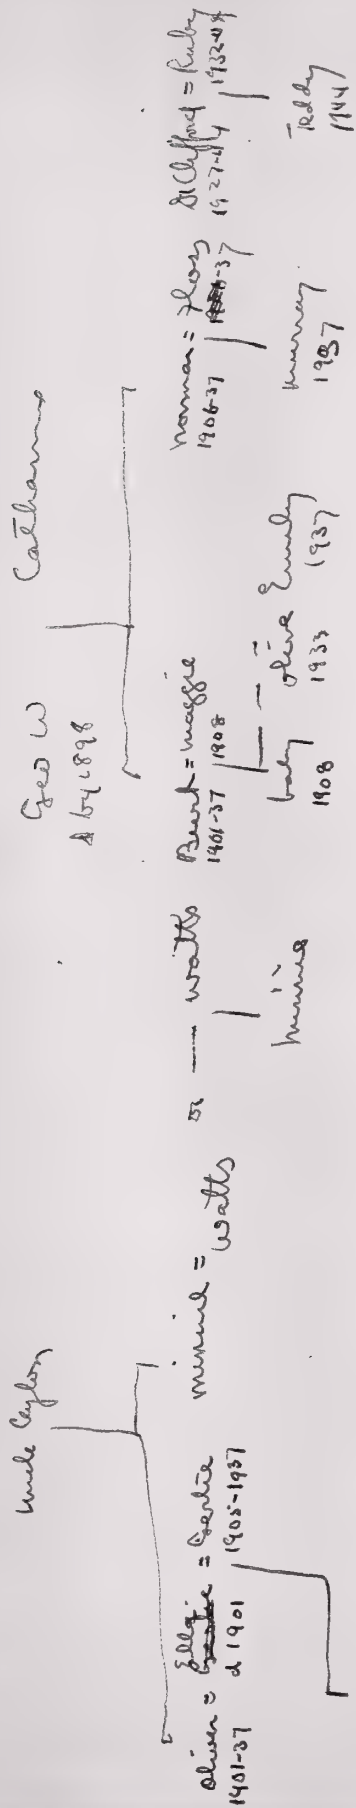 Uncle Ceylon
Geo W Catharine
d by 1898
Oliver = Ella = Gertie
1901-37 d 1901 1905-1937
Minnie = Watts
= — Watts
Minnie
Burt = Maggie
1901-37 1908
baby — Olive Emily
1908 1933 1937
Norman = Floss
1906-37 -37
Murray
1937
Dr Clifford = Ruby
1927-44 1932-44
Teddy
1944